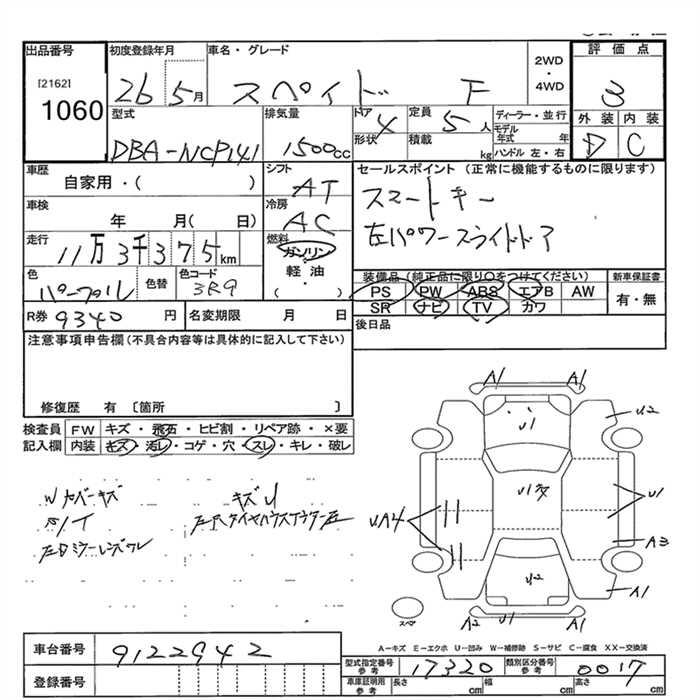 出品番号
[2162]
1060
初度登録年月
26 5月
車名・グレード
スペイド F
2WD
・
4WD
評価点
3
外装 内装
D C
型式
DBA-NCP141
排気量
1500cc
ドア 4
形状
定員 5人
積載 kg
ディーラー・並行
モデル年式 年
ハンドル 左・右
車歴
自家用・( )
シフト
AT
車検
年 月( 日)
冷房
AC
走行
11万3千375km
燃料
ガソリン
軽油
( )
色
パープル
色替
色コード
3R9
R券 9340 円
名変期限 月 日
セールスポイント (正常に機能するものに限ります)
スマートキー
左パワースライドドア
装備品 (純正品に限り○をつけてください)
PS PW ABS エアB AW
SR ナビ TV カワ
新車保証書
有・無
後日品
注意事項申告欄(不具合内容等は具体的に記入して下さい)
修復歴 有 〔箇所 〕
検査員記入欄
FW キズ・飛石・ヒビ割・リペア跡・×要
内装 キズ・汚レ・コゲ・穴・スレ・キレ・破レ
Wカバーキズ
キズU
左Rタイヤハウスアウター
左Dミラーレンズワレ
A1 A1
U1
U2
U1多
UA4
U1
A3
U2
A1
A2 U2 A1
スペア
A-キズ E-エクボ U-凹み W-補修跡 S-サビ C-腐食 XX-交換済
車台番号 9122942
登録番号
型式指定番号 参考 17320
類別区分番号 参考 0017
車庫証明用 参考
長さ cm
幅 cm
高さ cm